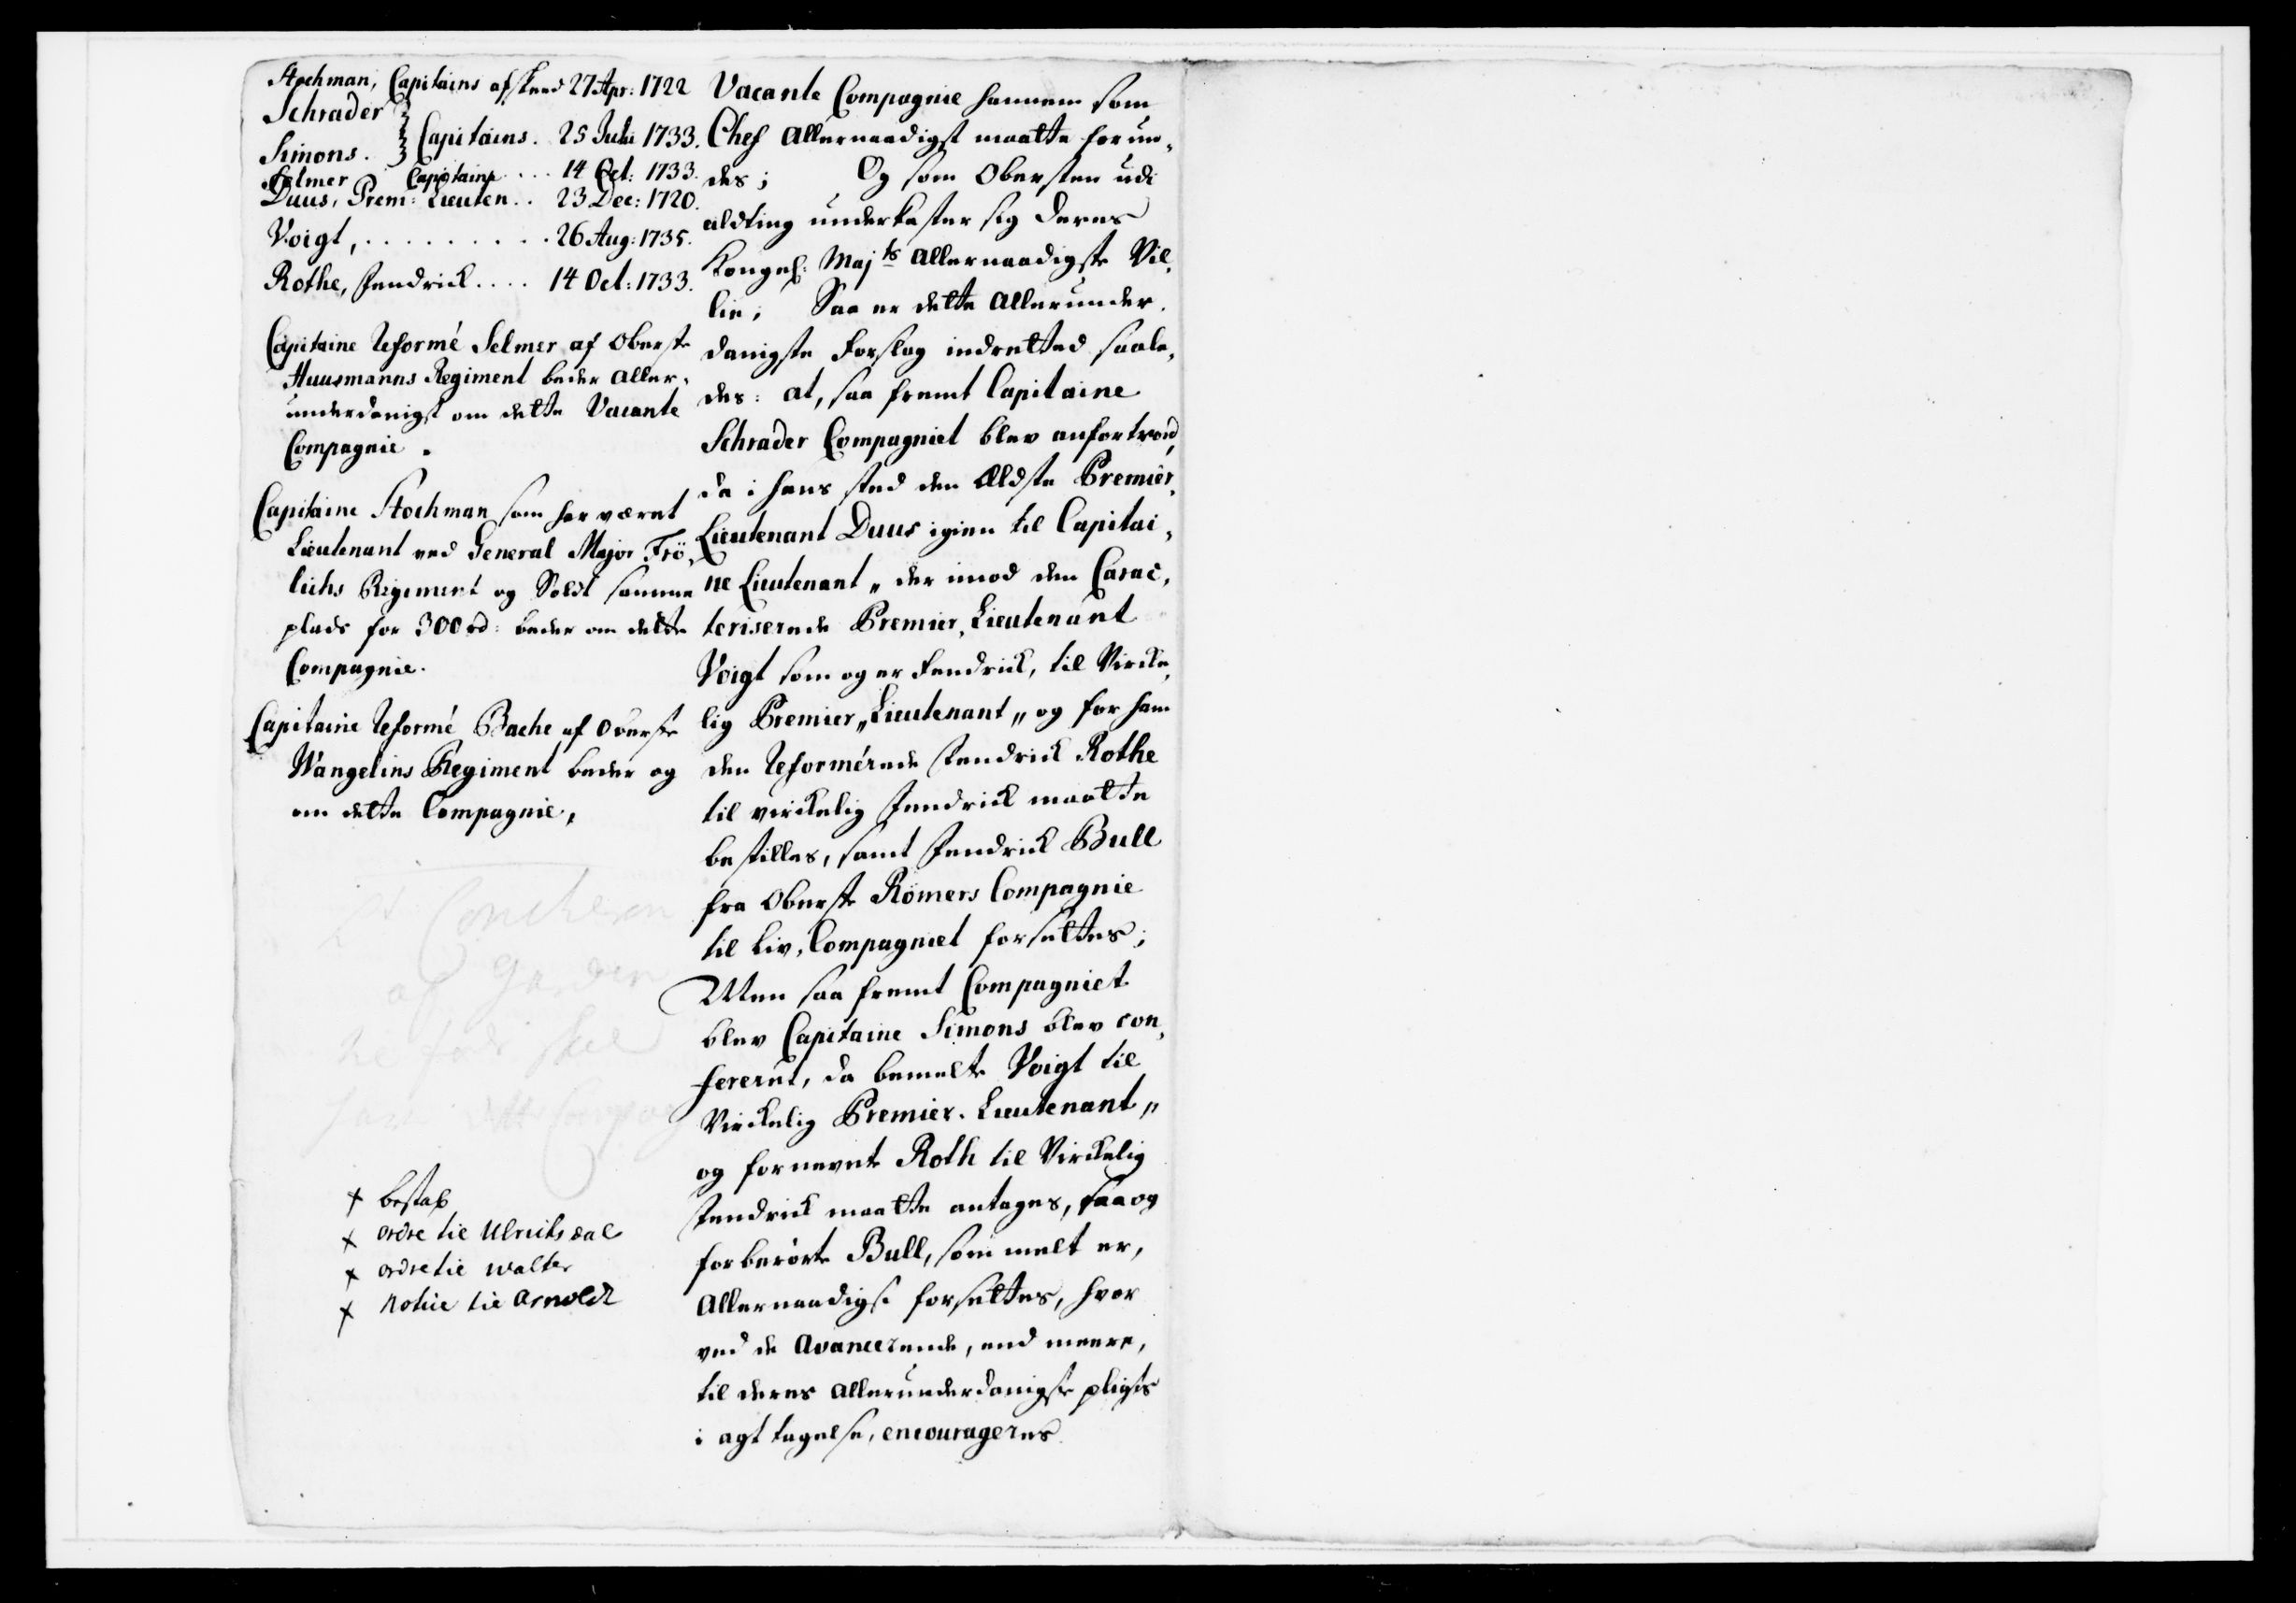 Stochman, Capitains afskeed 27 Apr: 1722
Schrader
Simons. } Capitains. 25 Julii 1733.
Selmer Capitaine ... 14 Oct: 1733.
Duus, Prem: Lieuten.. 23 Dec: 1720.
Voigt, ......... 26 Aug: 1735.
Rothe, Fendrick.... 14 Oct: 1733.
Capitaine Reformé Selmer af Oberste
Huusmanns Regiment beder aller,
underdanigst om dette Vacante
Compagnie.
Capitaine Stochman som har været
Lieutenant ved General Major Frö,
lichs Regiment og Soldt samme
plads for 300 rd: beder om dette
Compagnie.
Capitaine Reformé Bache af Oberste
Wangelins Regiment beder og
om dette Compagnie,
af Garden
x bestal
x ordre til Ulrichsdal
x ordre til Walter
x Notice til Arnoldt
Vacante Compagnie hannem som
Chef Allernaadigst maatte forun,
des; Og som Obersten udi
alting underkaster sig Deres
Kongel: Majts Allernaadigste Vil,
lie; Saa er dette Allerunder,
danigste Forslag indretted saale,
des: at, saa fremt Capitaine
Schrader Compagniet blev anfortroed,
da i hans sted den Ældste Premier,
Lieutenant Duus igien til Capitai,
ne Lieutenant, der imod den Carac,
teriserede Premier, Lieutenant
Voigt som og er Fendrick, til Vircke,
lig Premier, Lieutenant, og for ham
den Reformérede Fendrick Rothe
til virckelig Fendrick maatte
bestilles, samt Fendrick Bull
fra Oberste Römers Compagnie
til Liv, Compagniet forsettes;
Men saa fremt Compagniet
blev Capitaine Simons blev con,
fereret, da bemelte Voigt til
Virckelig Premier, Lieutenant,
og fornevnte Roth til Virckelig
Fendrick maatte antages, saa og
forberörte Bull, som melt er,
Allernaadigst forsettes, hvor
ved de Avancerende, end meere,
til deres allerunderdanigste pligts
i agt tagelse, encourageres.